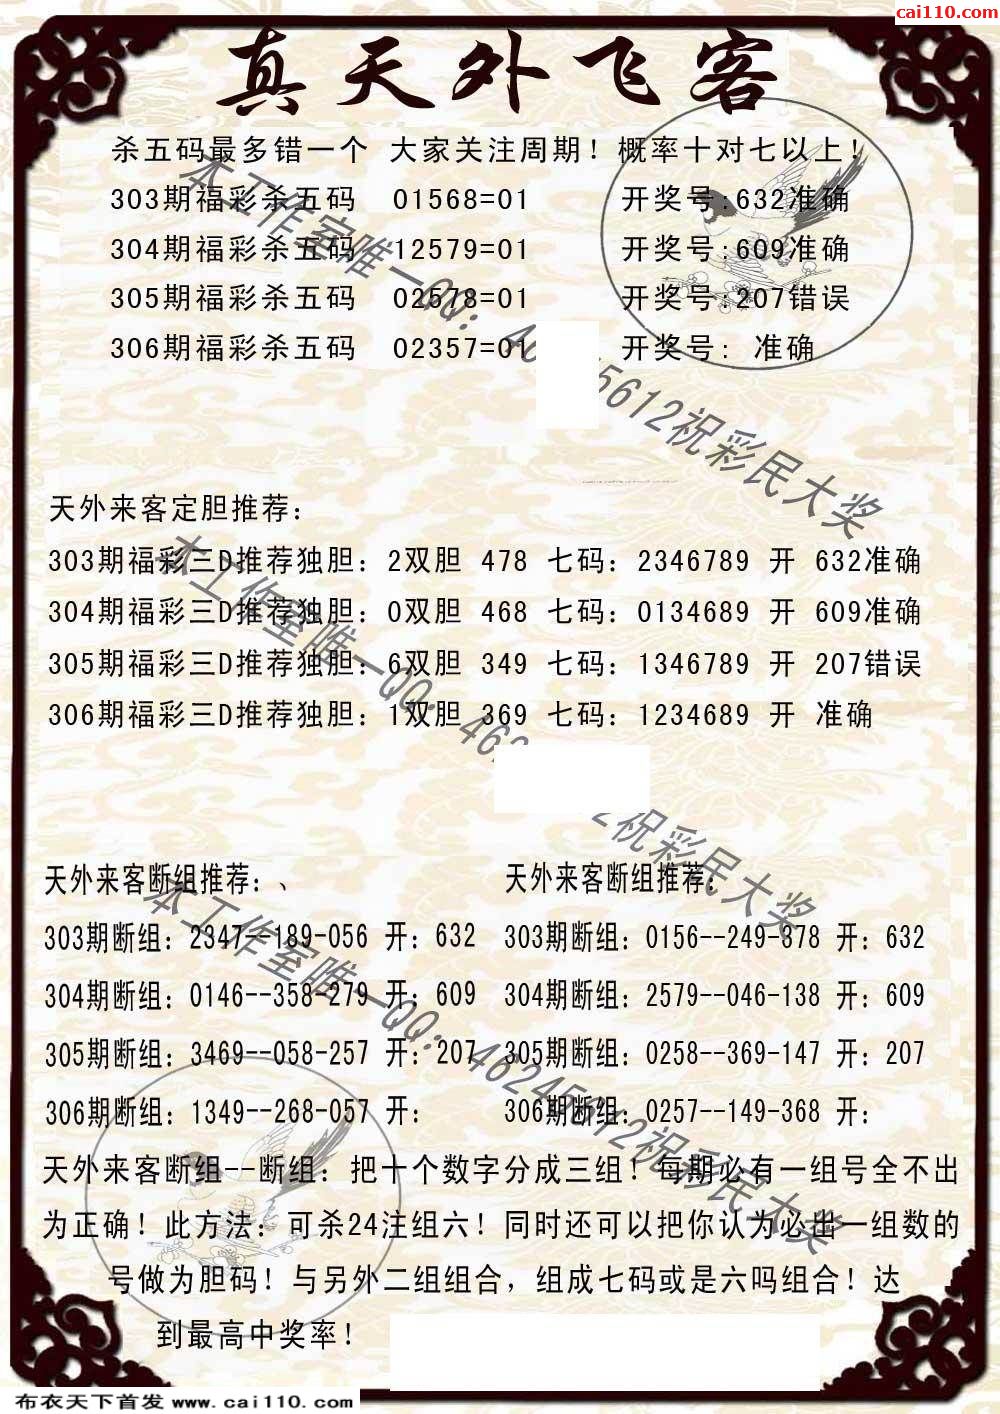 cai110.com
真天外飞客
杀五码最多错一个 大家关注周期！概率十对七以上！
303期福彩杀五码 01568=01 开奖号:632准确
304期福彩杀五码 12579=01 开奖号:609准确
305期福彩杀五码 02578=01 开奖号:207错误
306期福彩杀五码 02357=01 开奖号: 准确
本工作室唯一QQ: 5612祝彩民大奖
天外来客定胆推荐：
303期福彩三D推荐独胆：2双胆 478 七码：2346789 开 632准确
304期福彩三D推荐独胆：0双胆 468 七码：0134689 开 609准确
305期福彩三D推荐独胆：6双胆 349 七码：1346789 开 207错误
306期福彩三D推荐独胆：1双胆 369 七码：1234689 开 准确
本工作室唯一QQ: 46 2祝彩民大奖
天外来客断组推荐：、
303期断组：2347--189-056 开：632
304期断组：0146--358-279 开：609
305期断组：3469--058-257 开：207
306期断组：1349--268-057 开：
天外来客断组推荐：
303期断组：0156--249-378 开：632
304期断组：2579--046-138 开：609
305期断组：0258--369-147 开：207
306期断组：0257--149-368 开：
本工作室唯一QQ: 46245612祝彩民大奖
天外来客断组--断组：把十个数字分成三组！每期必有一组号全不出
为正确！此方法：可杀24注组六！同时还可以把你认为必出一组数的
号做为胆码！与另外二组组合，组成七码或是六吗组合！达
到最高中奖率！
布衣天下首发 www.cai110.com